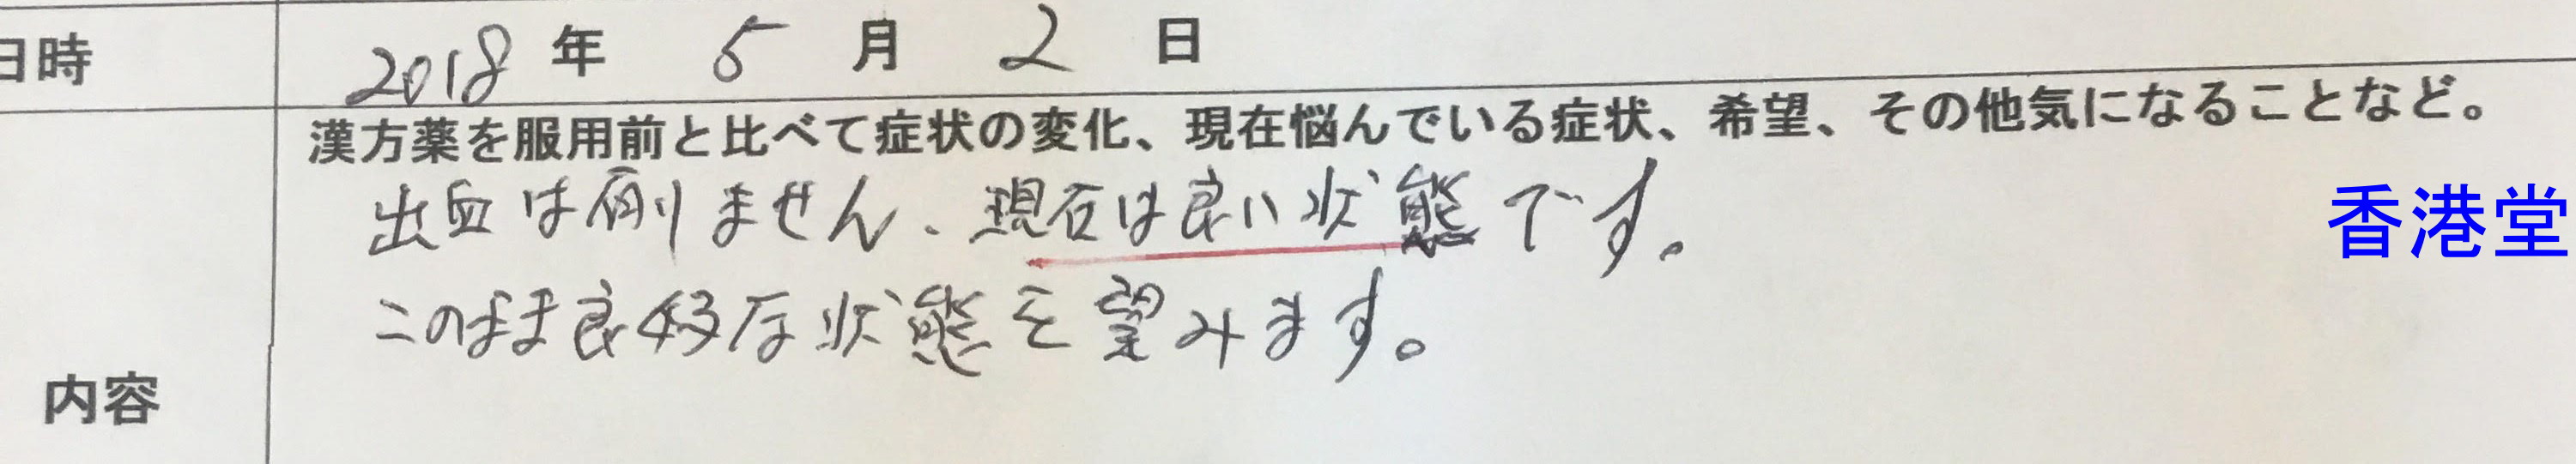 日時 2018 年 5 月 2 日
漢方薬を服用前と比べて症状の変化、現在悩んでいる症状、希望、その他気になることなど。
出血は有りません、現在は良い状態です。
香港堂
このまま良好な状態を望みます。
内容